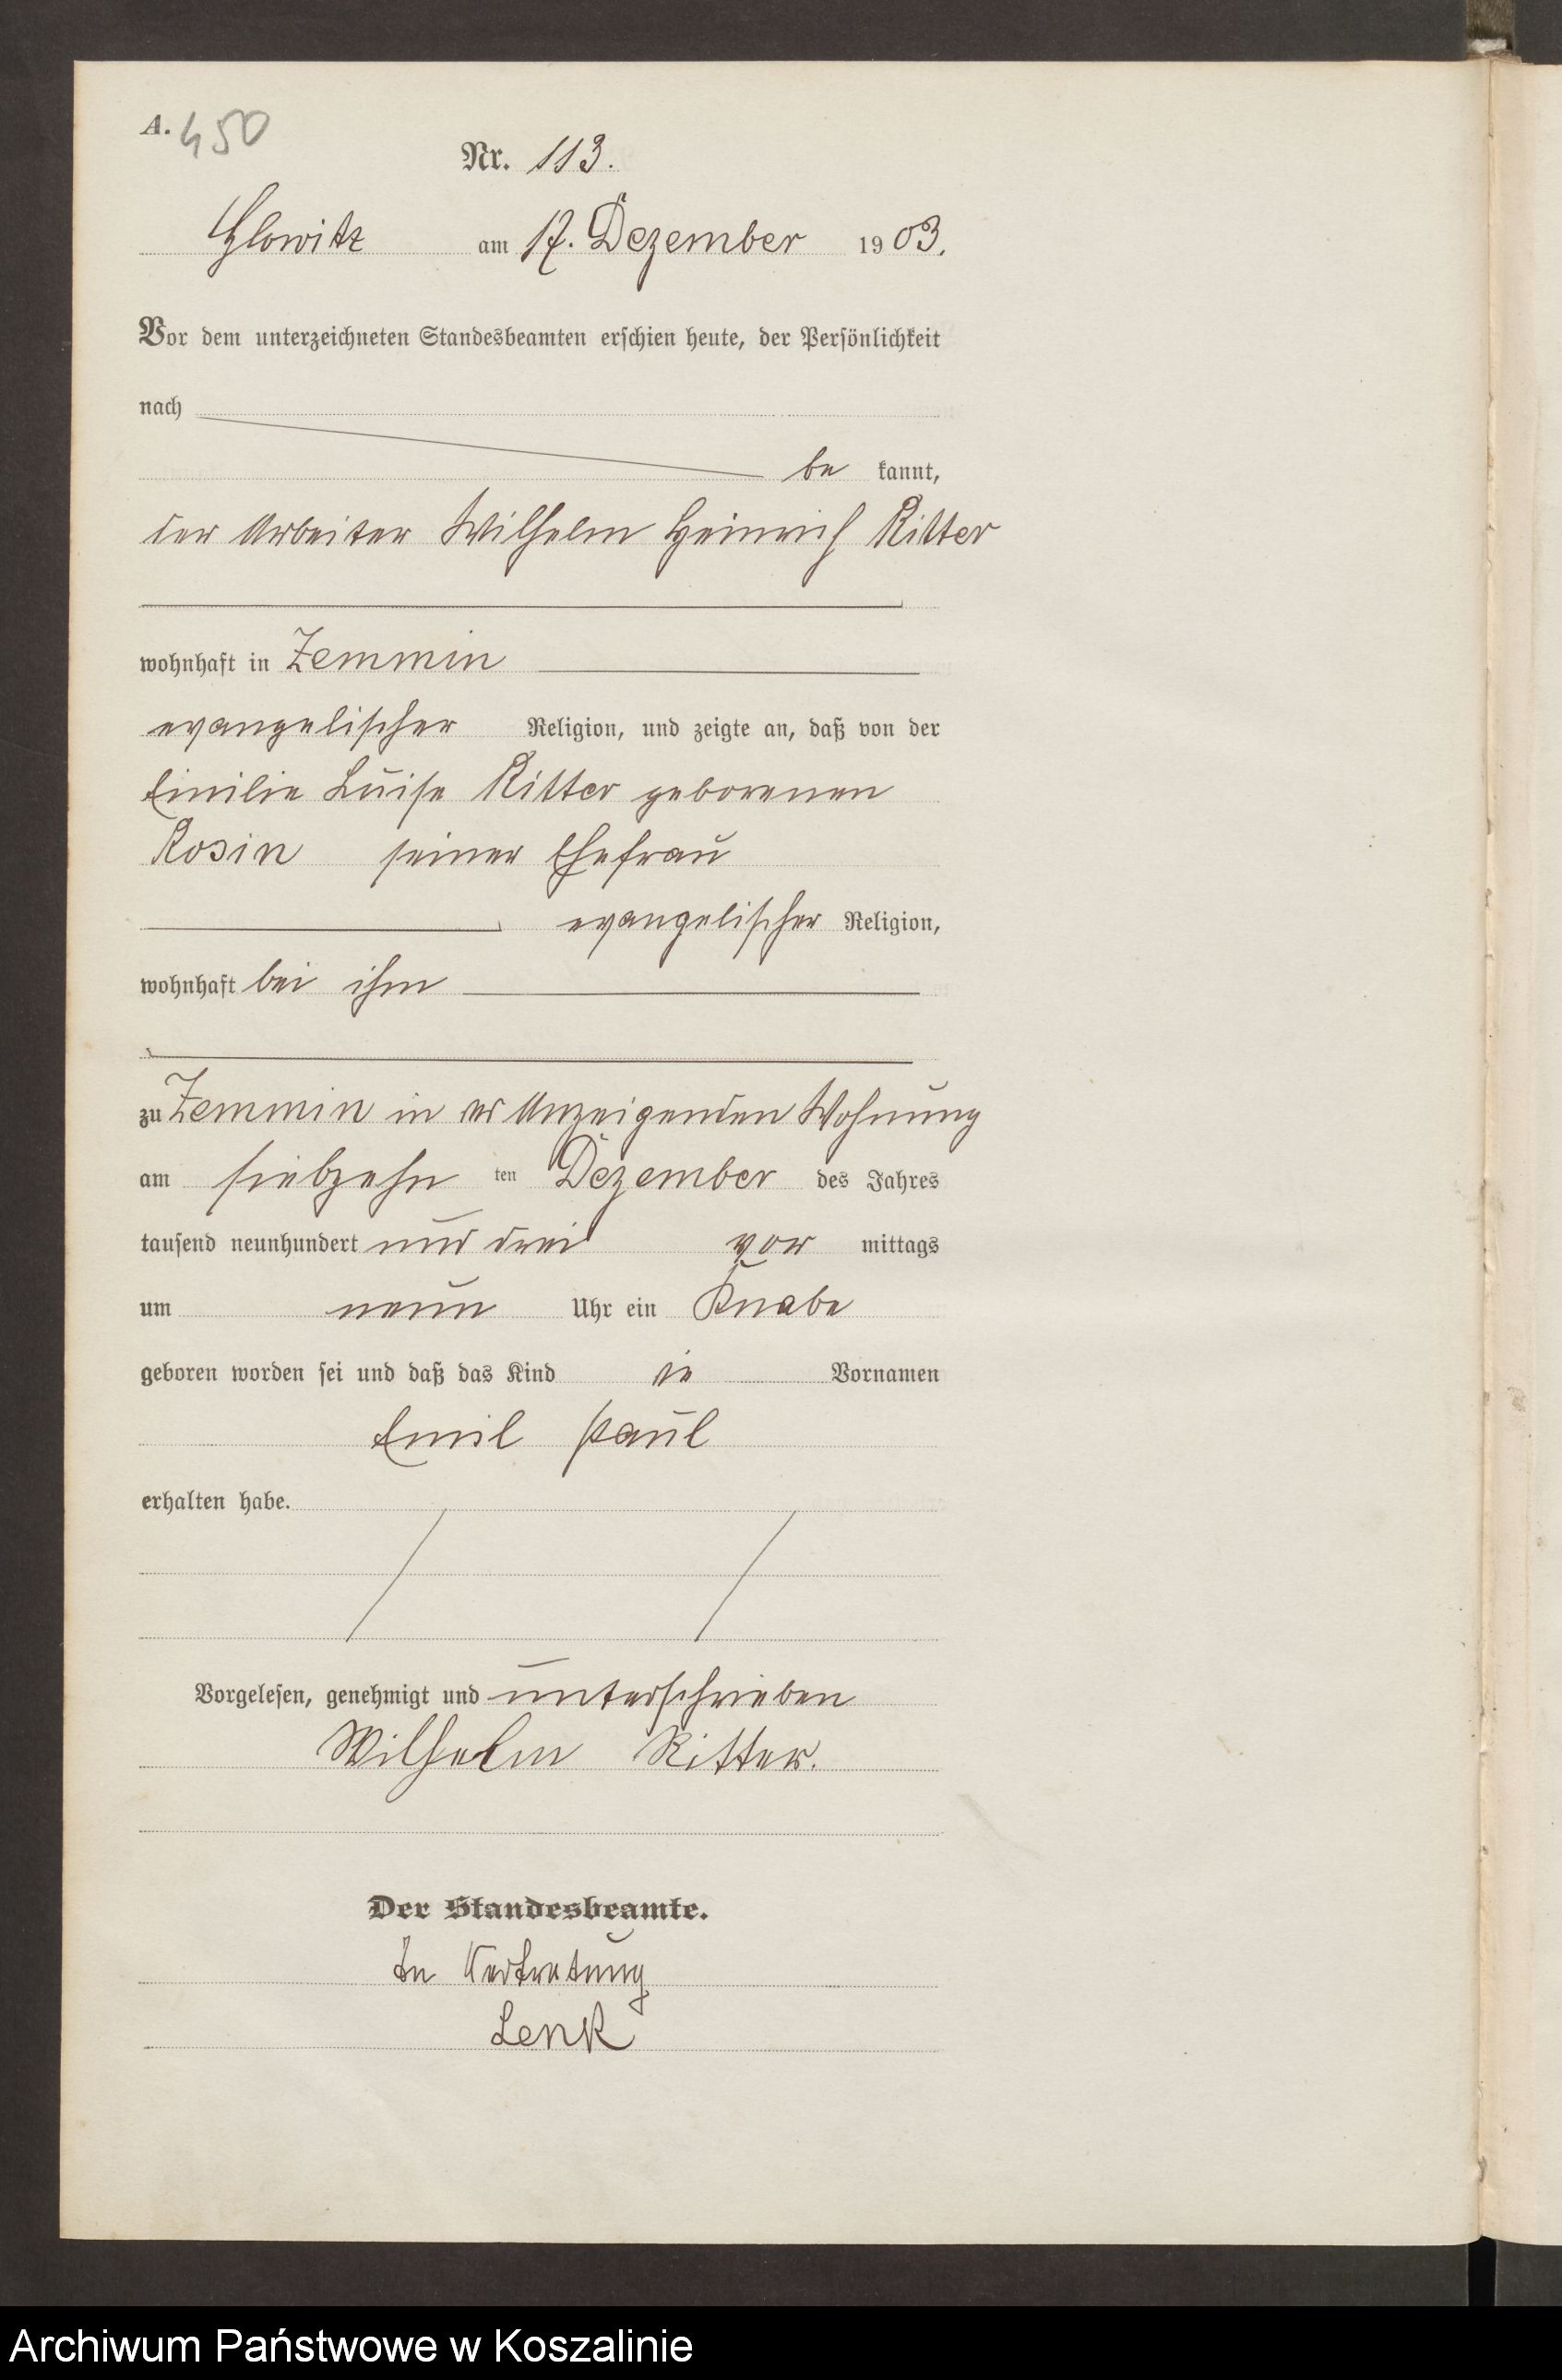 A. 450
Nr. 113.
Glowitz am 17. Dezember 1903.
Vor dem unterzeichneten Standesbeamten erschien heute, der Persönlichkeit
nach
be kannt,
der Arbeiter Wilhelm Heinrich Ritter
wohnhaft in Zemmin
evangelischer Religion, und zeigte an, daß von der
Emilie Luise Ritter geborenen
Rosin seiner Ehefrau
evangelischer Religion,
wohnhaft bei ihm
zu Zemmin in des Anzeigenden Wohnung
am siebzehn ten Dezember des Jahres
tausend neunhundert und drei vor mittags
um neun Uhr ein Knabe
geboren worden sei und daß das Kind die Vornamen
Emil Paul
erhalten habe.
Vorgelesen, genehmigt und unterschrieben
Wilhelm Ritter.
Der Standesbeamte.
In Vertretung
Lenk
Archiwum Państwowe w Koszalinie